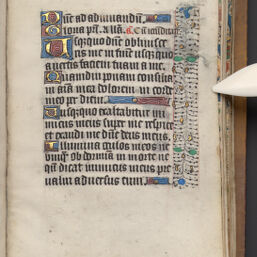 me ad adiuuandum.
Gloria pri. & filio.
Usquequo dne obliuisce
ris me in finem usquequo
auertis faciem tuam a me.
Quamdiu ponam consilia
in aia mea dolorem in corde
meo per diem.
Usquequo exaltabitur ini
micus meus super me respice
et exaudi me dne deus meus.
Illumina oculos meos ne
unqm obdormiam in morte ne
qn dicat inimicus meus pre
ualui aduersus eum.